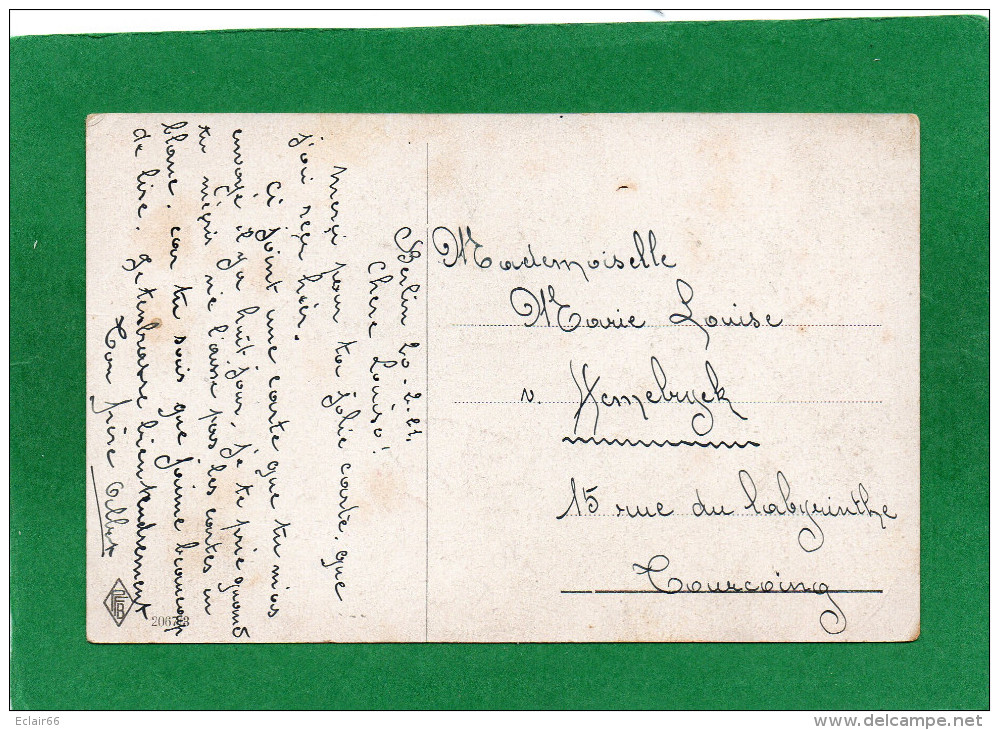 Berlin 20-2-21,
Chère Louise!
Merçi pour ta jolie carte, que
j'ai reçu hier.
Ci joint une carte que tu m'as
envoyé il y a huit jour, je te prie quand
tu m'écris ne laisse pas les cartes in
blanc. car tu sais que j'aime beaucoup
de lire. Je t'embrasse bien tendrement
Ton frère Albert
Mademoiselle
Marie Louise
v. Hemebryck
15 rue du labyrinthe
Tourcoing
PFB
206783
Eclair66
www.delcampe.net